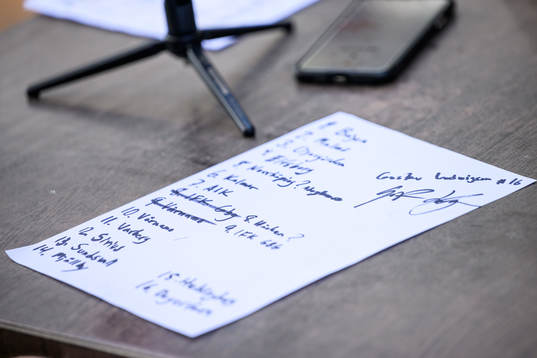 1. Bajen
2. Malmö
3. Djurgården
4. Elfsborg
5. Norrköping?
6. Kalmar
7. AIK
8. Häcken?
9. IFK GBG
10. Värnamo
11. Varberg
12. Sirius
13. Sundsvall
14. Mjällby
15. Helsingborg
16. Degerfors
Gustav Ludwigson #16